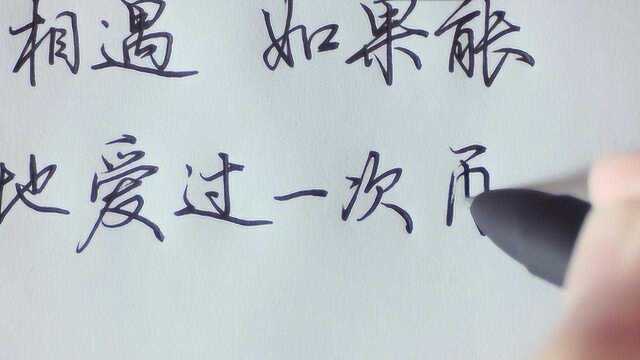 相遇 如果能
地爱过一次